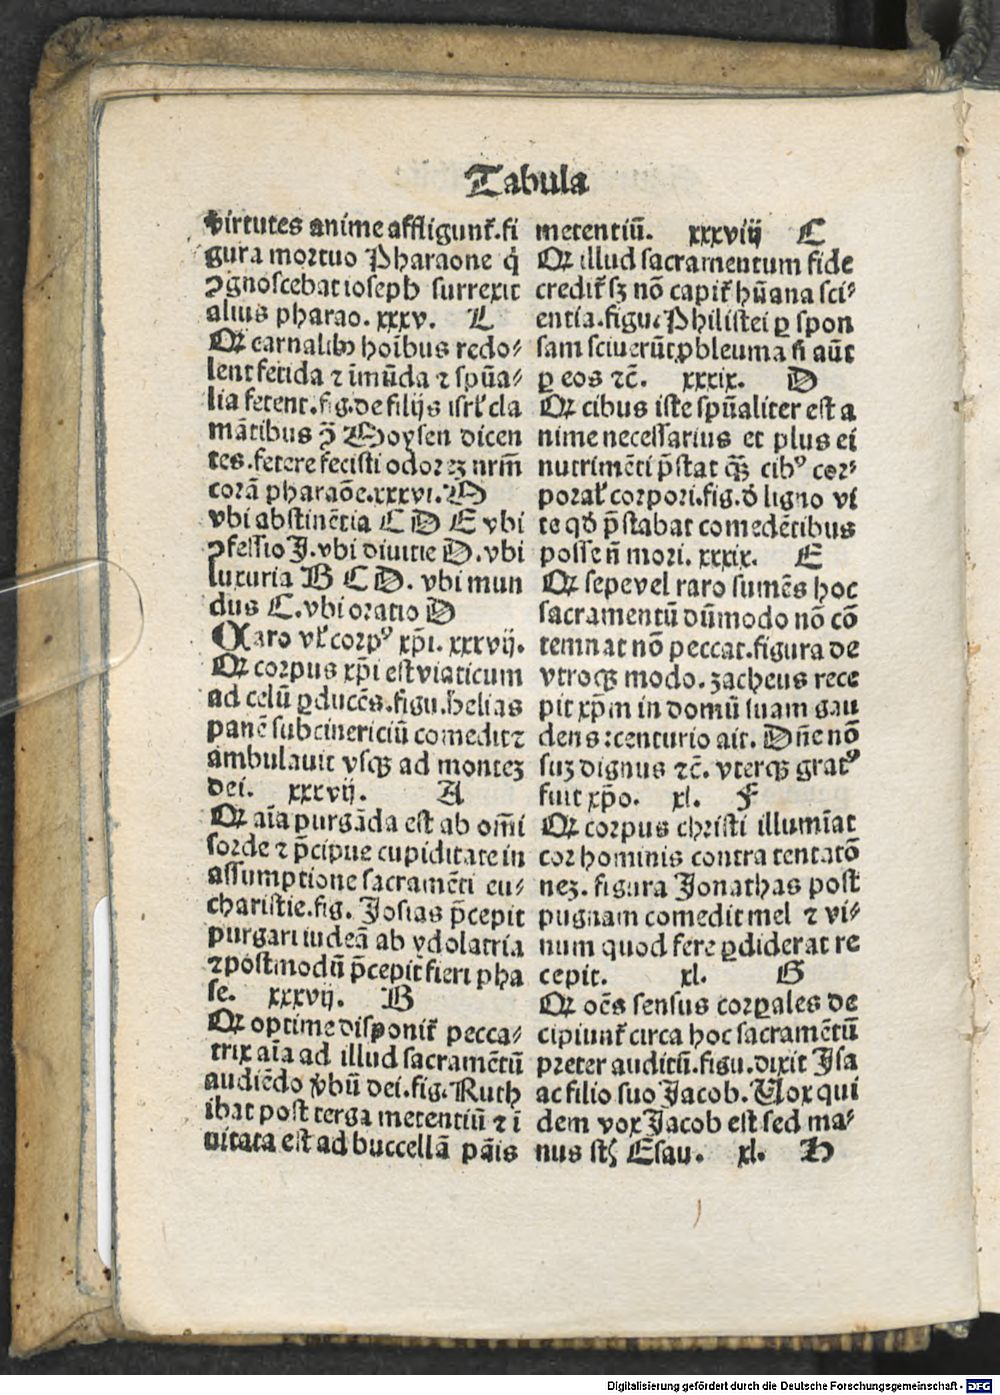 Tabula
virtutes anime affligunt̃.fi
gura mortuo Pharaone q̇
ꝯgnoscebat ioseph surrexit
alius pharao. xxxv. L
Qꝛ carnalibꝰ hoĩbus redo⸗
lent fetida ⁊ ĩmũda ⁊ spũa⸗
lia fetent.fig.de filijs isrl̓ cla
mãtibus ꝯ̃ Moysen dicen
tes.fetere fecisti odorẽ nrm̃
corã pharaõe.xxxvi. M
vbi abstinẽtia C D E vbi
ꝯfessio J.vbi diuitie D.vbi
luxuria B C D. vbi mun
dus C.vbi oratio D
Qaro vl̓ corpꝰ xp̃i. xxxvij.
Qꝛ corpus xp̃i est viaticum
ad celũ ꝑducẽs.figu.helias
panẽ subcinericiũ comedit ⁊
ambulauit vsqꝫ ad montez
dei. xxxvij. A
Qꝛ aĩa purgãda est ab om̃i
sorde ⁊ p̃cipue cupiditate in
assumptione sacramẽti eu⸗
charistie.fig. Josias p̃cepit
purgari iudeã ab ydolatria
⁊postmodũ p̃cepit fieri pha
se. xxxvij. B
Qꝛ optime disponit̃ pecca⸗
trix aĩa ad illud sacramẽtũ
audiẽdo v̓bũ dei.fig. Ruth
ibat post terga metentiũ ⁊ ĩ
uitata est ad buccellã pãis
metentiũ. xxxviij C
Qꝛ illud sacramentum fide
credit̃ sꝫ nõ capit̃ hũana sci⸗
entia.figu. Philistei ꝑ spon
sam sciuerũt ꝓbleuma ñ aũt
ꝑ eos ⁊c̃. xxxix. D
Qꝛ cibus iste spũaliter est a
nime necessarius et plus ei
nutrimẽti p̃stat qꝫ̃ cibꝰ cor⸗
poral̓ corpori.fig.ď ligno vi
te qď p̃stabat comedẽtibus
posse ñ mori. xxxix. E
Qꝛ sepe vel raro sumẽs hoc
sacramentũ dũmodo nõ cõ
temnat nõ peccat.figura de
vtroqꝫ modo. zacheus rece
pit xp̃m in domũ suam gau
dens:centurio ait. Dñe nõ
suꝫ dignus ⁊c̃. vterqꝫ gratꝰ
fuit xp̃o. xl. F
Qꝛ corpus christi illumĩat
cor hominis contra tentatõ
nez. figura Jonathas post
pugnam comedit mel ⁊ vi⸗
num quod fere ꝑdiderat re
cepit. xl. G
Qꝛ oẽs sensus corꝑales de
cipiunt̃ circa hoc sacramẽtũ
preter auditũ.figu.dixit Jsa
ac filio suo Jacob. Uox qui
dem vox Jacob est sed ma⸗
nus st̃ Esau. xl. H
Digitalisierung gefördert durch die Deutsche Forschungsgemeinschaft - DFG